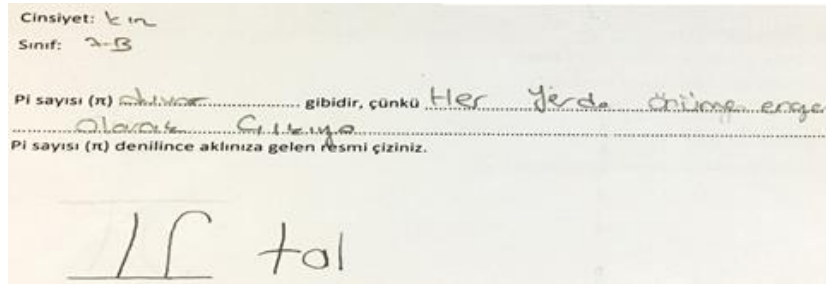 Cinsiyet: kın
Sınıf: 7-B
Pi sayısı (π) duvar gibidir, çünkü Her yerde önüme enge
olarak Çıkıyo
Pi sayısı (π) denilince aklınıza gelen resmi çiziniz.
tal